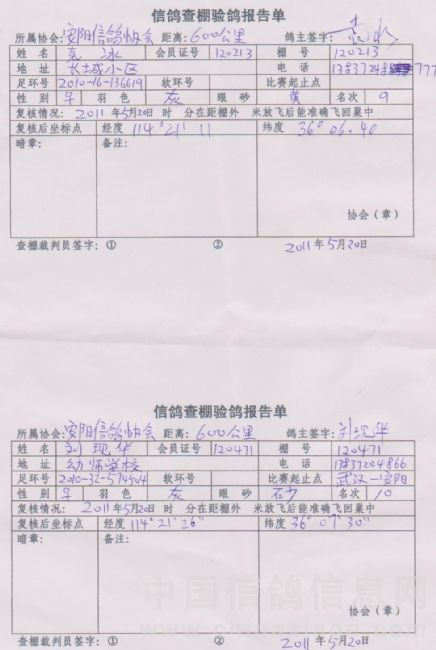 信鸽查棚验鸽报告单
所属协会:安阳信鸽协会 距离:600公里 鸽主签字:袁冰
姓 名 袁 冰 会员证号 120213 棚 号 120213
地 址 长城小区 电 话
足环号 2010-16-136619 软环号 比赛起止点
性 别 羽 色 灰 眼 砂 黄 名次 9
复核情况: 2011年5月20日 时 分在距棚外 米放飞后能准确飞回巢中
复核后坐标点 经度 114°21′11 纬度 36°06.40
暗章: 备注:
协会(章)
查棚裁判员签字:① ② 2011年5月20日
信鸽查棚验鸽报告单
所属协会:安阳信鸽协会 距离:600公里 鸽主签字:刘现华
姓 名 刘现华 会员证号 120471 棚 号 120471
地 址 幼师学校 电 话 13837204866
足环号 2010-32-574504 软环号 比赛起止点 武汉—安阳
性 别 羽 色 灰 眼 砂 砂 名次 10
复核情况: 2011年5月20日 时 分在距棚外 米放飞后能准确飞回巢中
复核后坐标点 经度 114°21′26″ 纬度 36°07′30″
暗章: 备注:
中国信鸽信息网
协会(章)
查棚裁判员签字:① ② 2011年5月20日